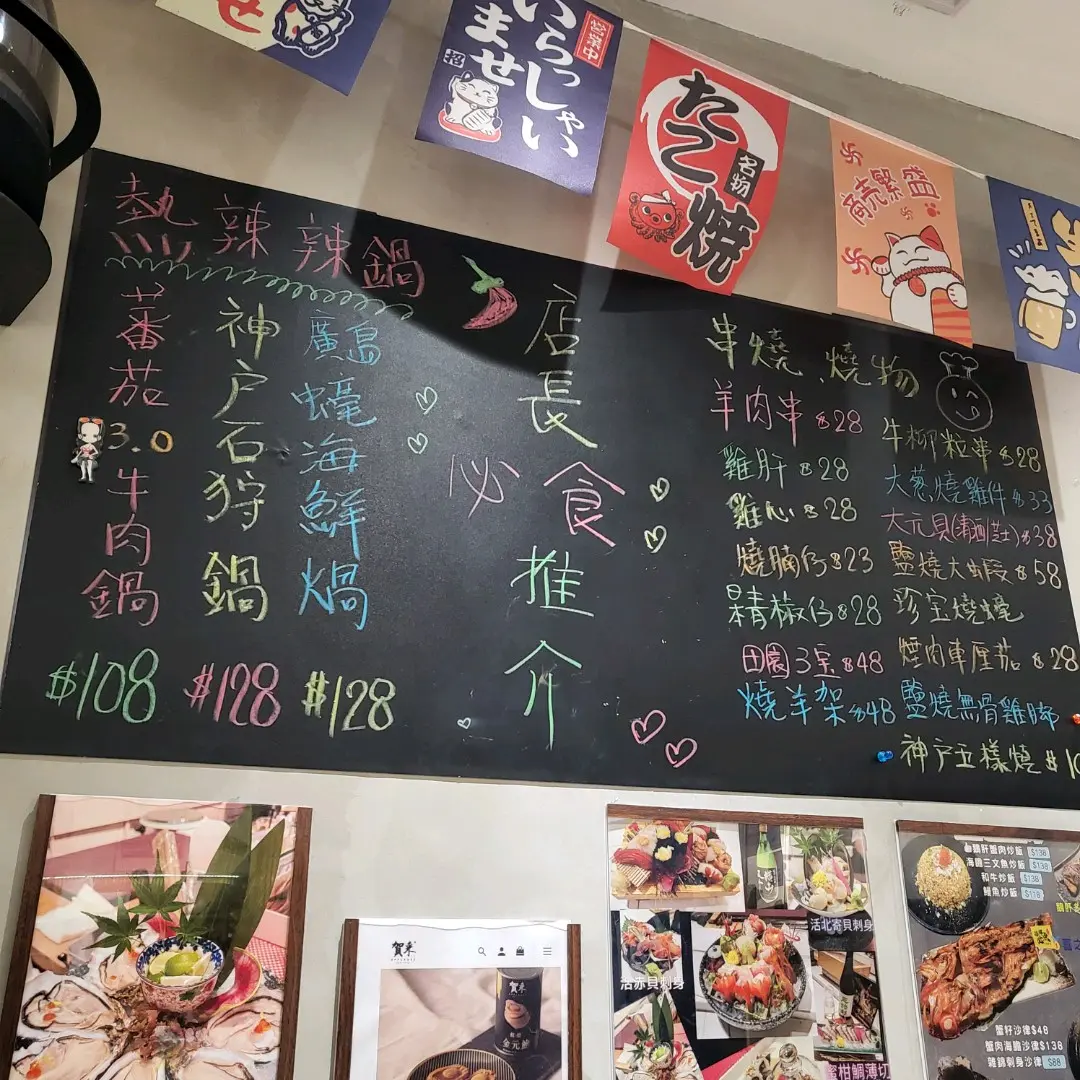 いらっしゃい
ませ
営業中
招
たこ
焼
名物
商売繁盛
熱辣辣鍋
蕃茄3.0牛肉鍋
$108
神戶石狩鍋
$128
廣島蠔海鮮煱
$128
店長
必食
推介
串燒、燒物
羊肉串 $28
雞肝 $28
雞心 $28
燒腩仔 $23
田園3宝 $48
燒羊架 $48
牛柳粒串 $28
大葱燒雞件 $33
$38
鹽燒大蝦 $58
珍宝燒蠔
煙肉車厘茄 $28
鹽燒無骨雞腳
神戶五樣燒
賀來
賀來
活北寄貝刺身
活赤貝刺身
蜜柑鯛薄切
鵝肝蟹肉炒飯 $138
海膽三文魚炒飯 $138
和牛炒飯 $138
鰻魚炒飯 $118
蟹籽沙律$48
蟹肉海膽沙律$138
雜錦刺身沙律 $88